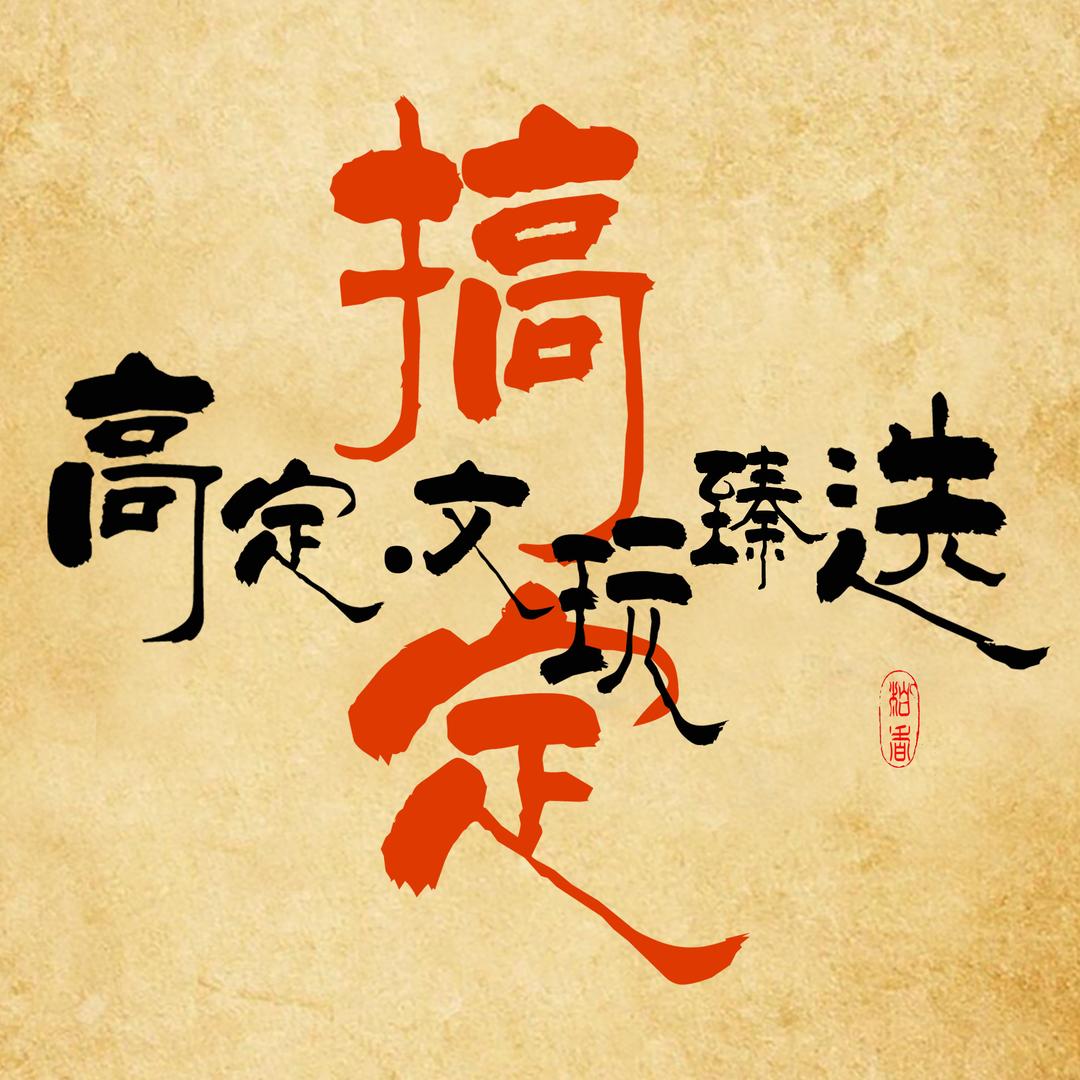 搞定
高定·文玩臻选